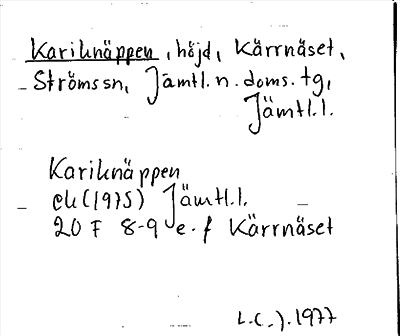 Kariknäppen, höjd, Kärrnäset,
Ströms sn, Jämtl. n. doms. tg,
Jämtl. l.
Kariknäppen
ek (1975) Jämtl. l.
20 F 8-9 e-f Kärrnäset
L.C.J. 1977